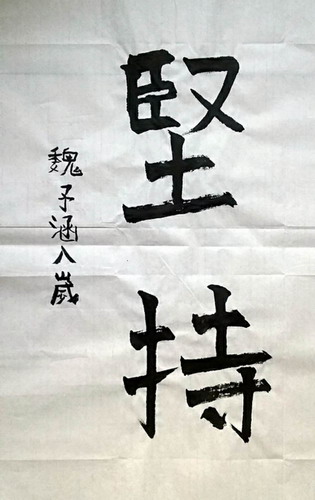 堅持
魏子涵八嵗